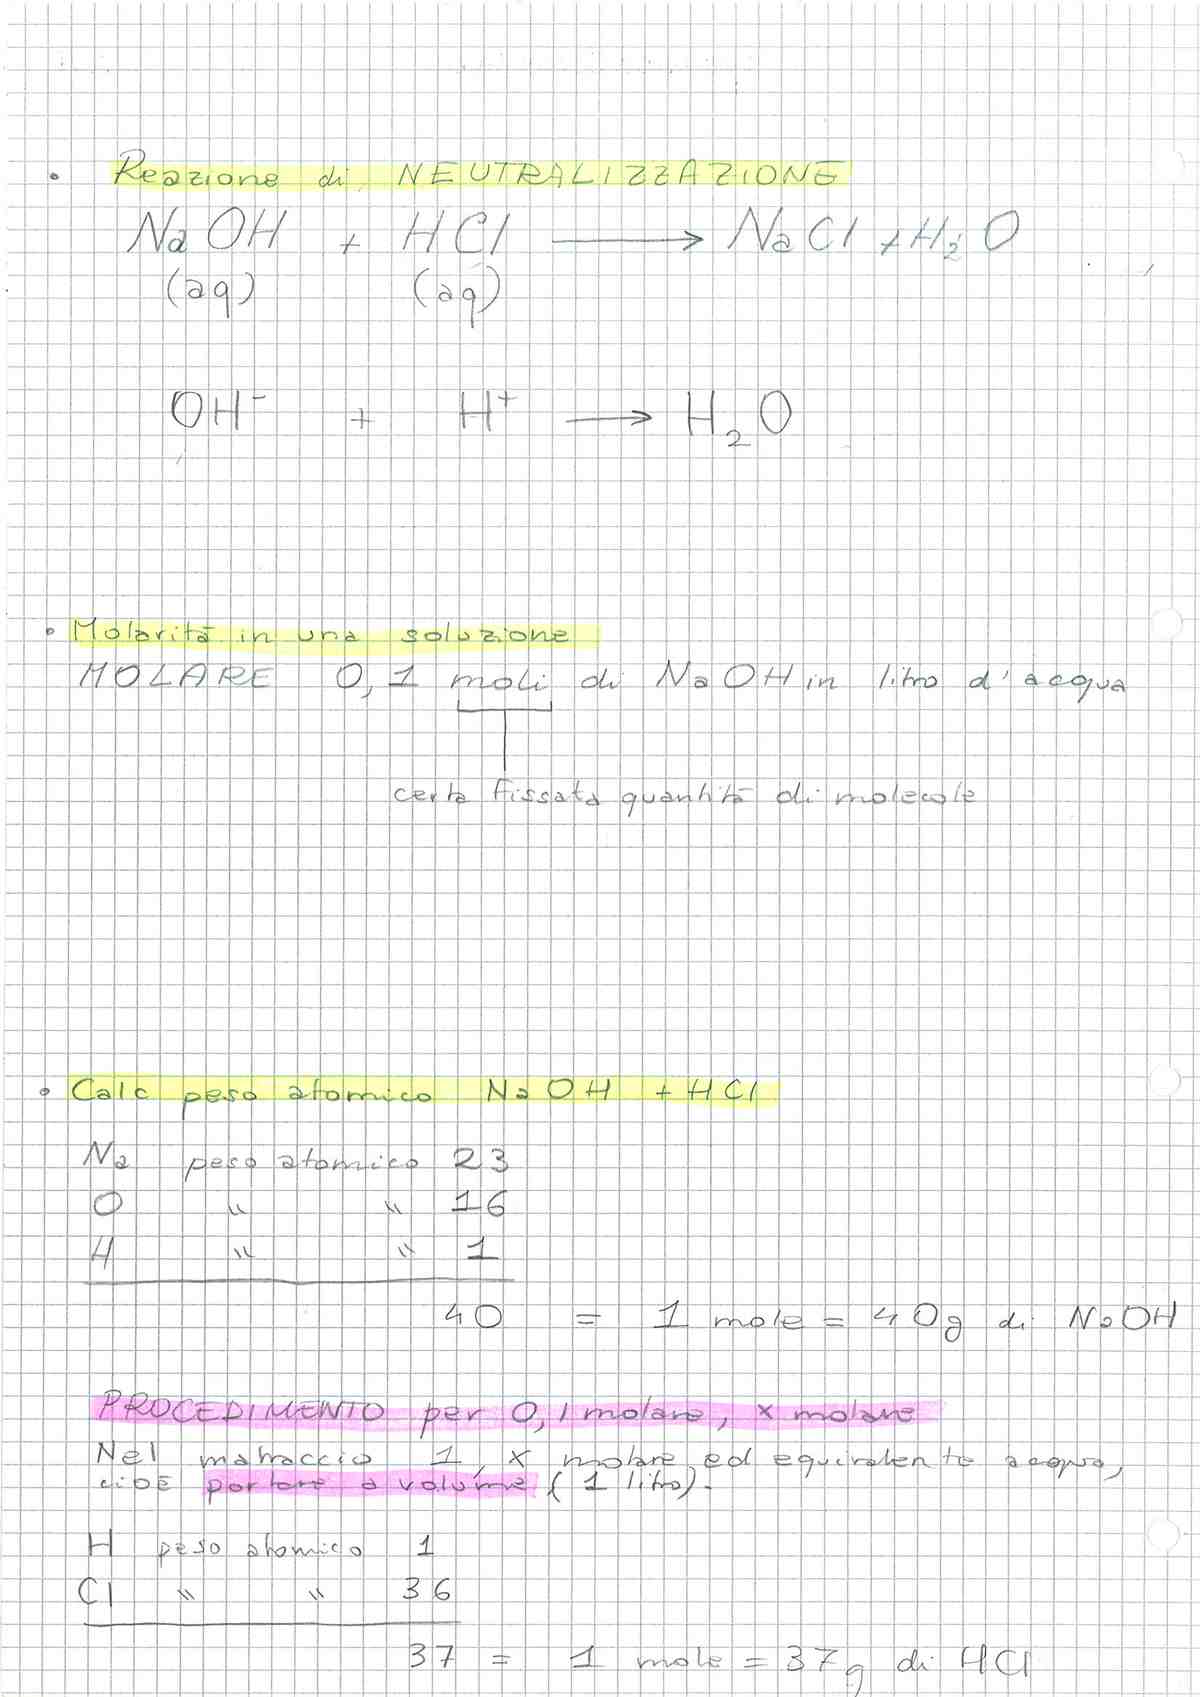 • Reazione di NEUTRALIZZAZIONE
NaOH + HCl → NaCl + H₂O
(aq) (aq)
OH⁻ + H⁺ → H₂O
• Molarità in una soluzione
MOLARE 0,1 moli di NaOH in litro d'acqua
certa fissata quantità di molecole
• Calc peso atomico NaOH + HCl
Na peso atomico 23
O " " 16
H " " 1
40 = 1 mole = 40g di NaOH
PROCEDIMENTO per 0,1 molare, x molare
Nel matraccio 1, x molare ed equivalente acqua,
cioè portare a volume (1 litro).
H peso atomico 1
Cl " " 36
37 = 1 mole = 37g di HCl